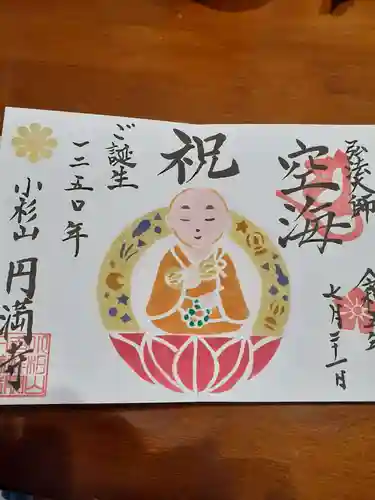 弘法大師
空海
令和五年
七月二十一日
祝
ご誕生
一二五〇年
小杉山
円満寺